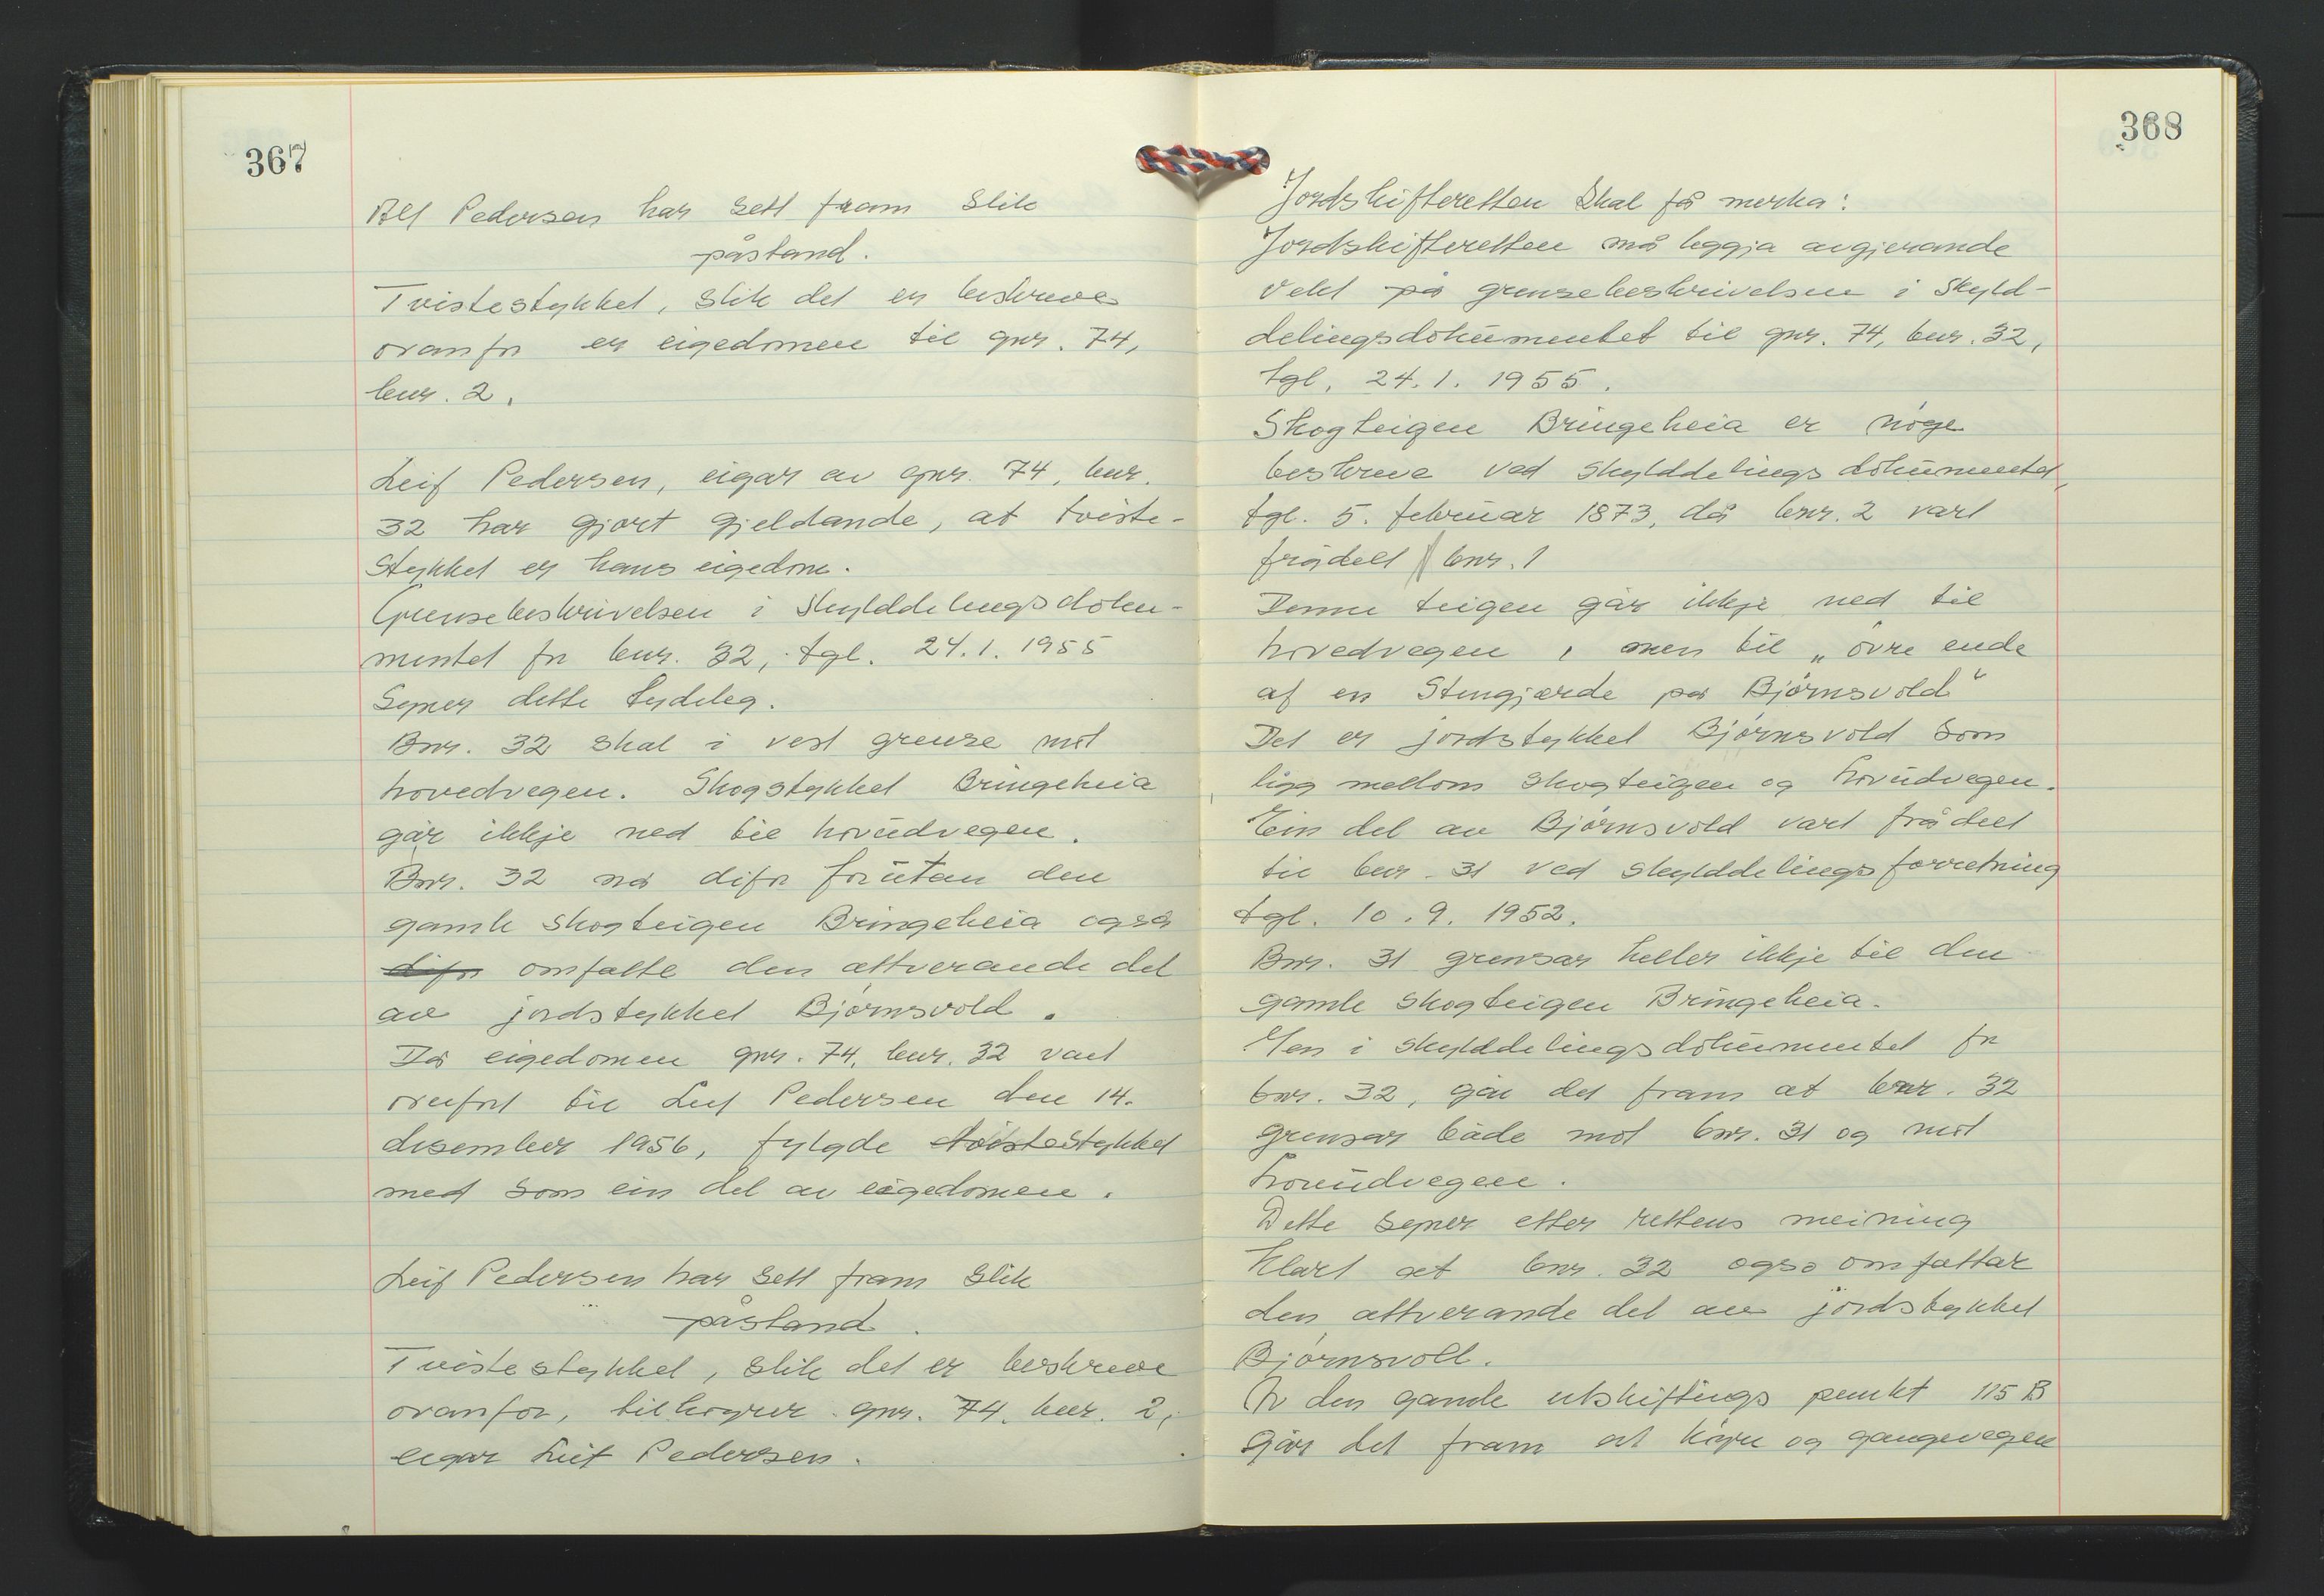 367
Alf Pedersen har sett fram slik
påstand.
Tvistestykket, slik det er beskreve
ovanfor er eigedomen til gnr. 74,
bnr. 2.
Leif Pedersen, eigar av gnr. 74, bnr.
32 har gjort gjeldande, at tviste-
stykket er hans eigedom.
Grensebeskrivelsen i skylddelingsdoku-
mentet for bnr. 32, tgl. 24.1.1955
syner dette tydeleg.
Bnr. 32 skal i vest grense mot
hovedvegen. Skogstykket Bringeheia
går ikkje ned til hovudvegen.
Bnr. 32 må difor forutan den
gamle skogteigen Bringeheia også
difor omfatte den attverande del
av jordstykket Bjørnsvold.
Då eigedomen gnr. 74, bnr. 32 vart
overført til Leif Pedersen den 14.
desember 1956, fylgde tvistestykket
med som ein del av eigedomen.
Leif Pedersen har sett fram slik
påstand.
Tvistestykket, slik det er beskreve
ovanfor, tilhøyrer gnr. 74, bnr. 2,
eigar Leif Pedersen.
368
Jordskifteretten skal få merka:
Jordskifteretten må leggja avgjerande
vekt på grensebeskrivelsen i skyld-
delingsdokumentet til gnr. 74, bnr. 32,
tgl. 24.1.1955.
Skogteigen Bringeheia er nøge
beskreve ved skylddelingsdokumentet,
tgl. 5. februar 1873, då bnr. 2 vart
frådelt bnr. 1
Denne teigen går ikkje ned til
hovedvegen, men til „øvre ende
af en Stengjærde på Bjørnsvold"
Det er jordstykket Bjørnsvold som
ligg mellom skogteigen og hovudvegen.
Ein del av Bjørnsvold vart frådelt
til bnr. 31 ved skylddelingsforretning
tgl. 10.9.1952.
Bnr. 31 grensar heller ikkje til den
gamle skogteigen Bringeheia.
Men i skylddelingsdokumentet for
bnr. 32, går det fram at bnr. 32
grensar både mot bnr. 31 og mot
hovudvegen.
Dette syner etter rettens meining
klart at bnr. 32 også omfattar
den attverande del av jordstykket
Bjørnsvoll.
Av den gamle utskiftings punkt 115 B
går det fram at køyre og gangevegen